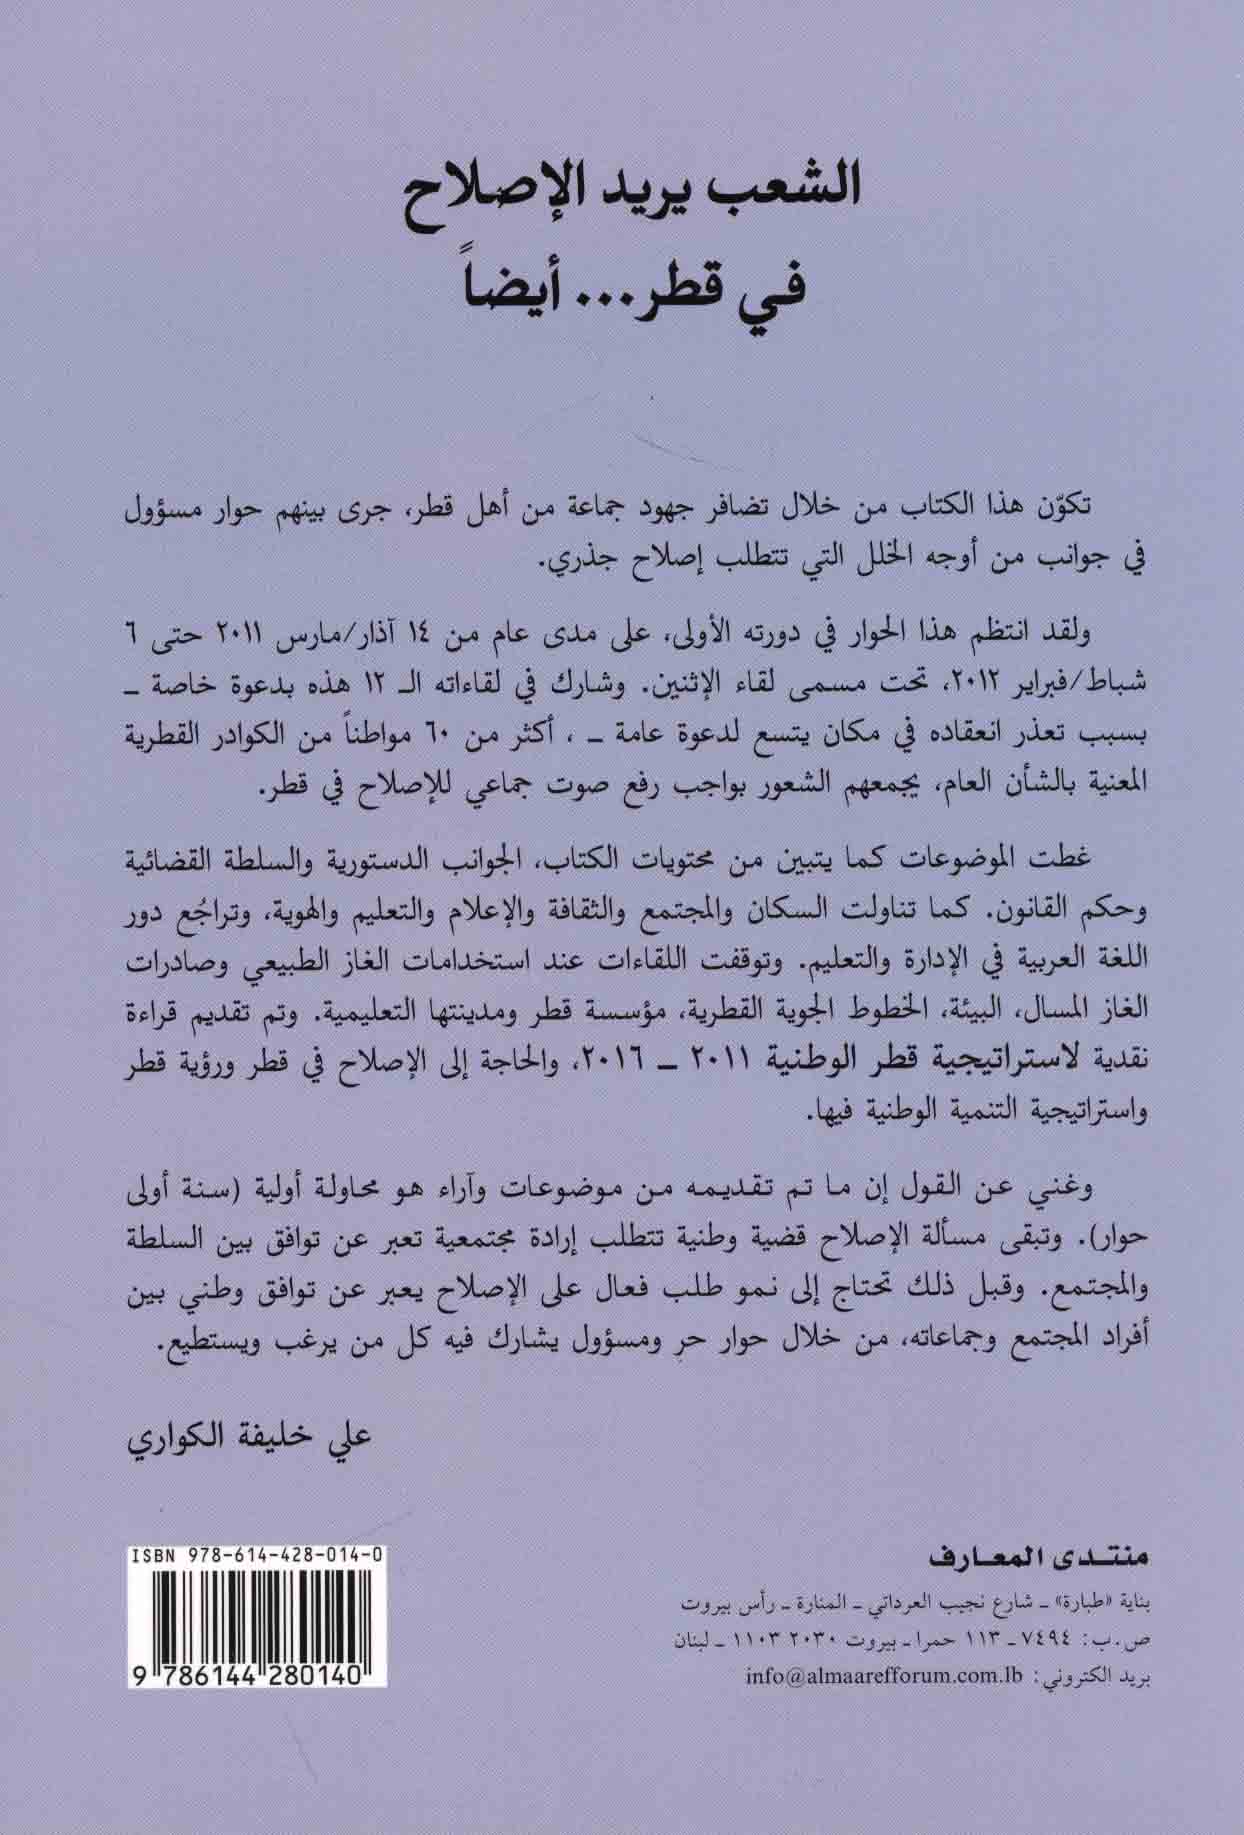 الشعب يريد الإصلاح
في قطر... أيضاً
تكوّن هذا الكتاب من خلال تضافر جهود جماعة من أهل قطر، جرى بينهم حوار مسؤول
في جوانب من أوجه الخلل التي تتطلب إصلاح جذري.
ولقد انتظم هذا الحوار في دورته الأولى، على مدى عام من ١٤ آذار/مارس ٢٠١١ حتى ٦
شباط/فبراير ٢٠١٢، تحت مسمى لقاء الإثنين. وشارك في لقاءاته الـ ١٢ هذه بدعوة خاصة ـ
بسبب تعذر انعقاده في مكان يتسع لدعوة عامة ـ ، أكثر من ٦٠ مواطناً من الكوادر القطرية
المعنية بالشأن العام، يجمعهم الشعور بواجب رفع صوت جماعي للإصلاح في قطر.
غطت الموضوعات كما يتبين من محتويات الكتاب، الجوانب الدستورية والسلطة القضائية
وحكم القانون. كما تناولت السكان والمجتمع والثقافة والإعلام والتعليم والهوية، وتراجُع دور
اللغة العربية في الإدارة والتعليم. وتوقفت اللقاءات عند استخدامات الغاز الطبيعي وصادرات
الغاز المسال، البيئة، الخطوط الجوية القطرية، مؤسسة قطر ومدينتها التعليمية. وتم تقديم قراءة
نقدية لاستراتيجية قطر الوطنية ٢٠١١ ـ ٢٠١٦، والحاجة إلى الإصلاح في قطر ورؤية قطر
واستراتيجية التنمية الوطنية فيها.
وغني عن القول إن ما تم تقديمه من موضوعات وآراء هو محاولة أولية (سنة أولى
حوار). وتبقى مسألة الإصلاح قضية وطنية تتطلب إرادة مجتمعية تعبر عن توافق بين السلطة
والمجتمع. وقبل ذلك تحتاج إلى نمو طلب فعال على الإصلاح يعبر عن توافق وطني بين
أفراد المجتمع وجماعاته، من خلال حوار حر ومسؤول يشارك فيه كل من يرغب ويستطيع.
علي خليفة الكواري
منتدى المعارف
بناية «طبارة» ـ شارع نجيب العرداتي ـ المنارة ـ رأس بيروت
ص.ب: ٧٤٩٤ ـ ١١٣ حمرا ـ بيروت ٢٠٣٠ ١١٠٣ ـ لبنان
بريد الكتروني: info@almaarefforum.com.lb
ISBN 978-614-428-014-0
9 786144 280140